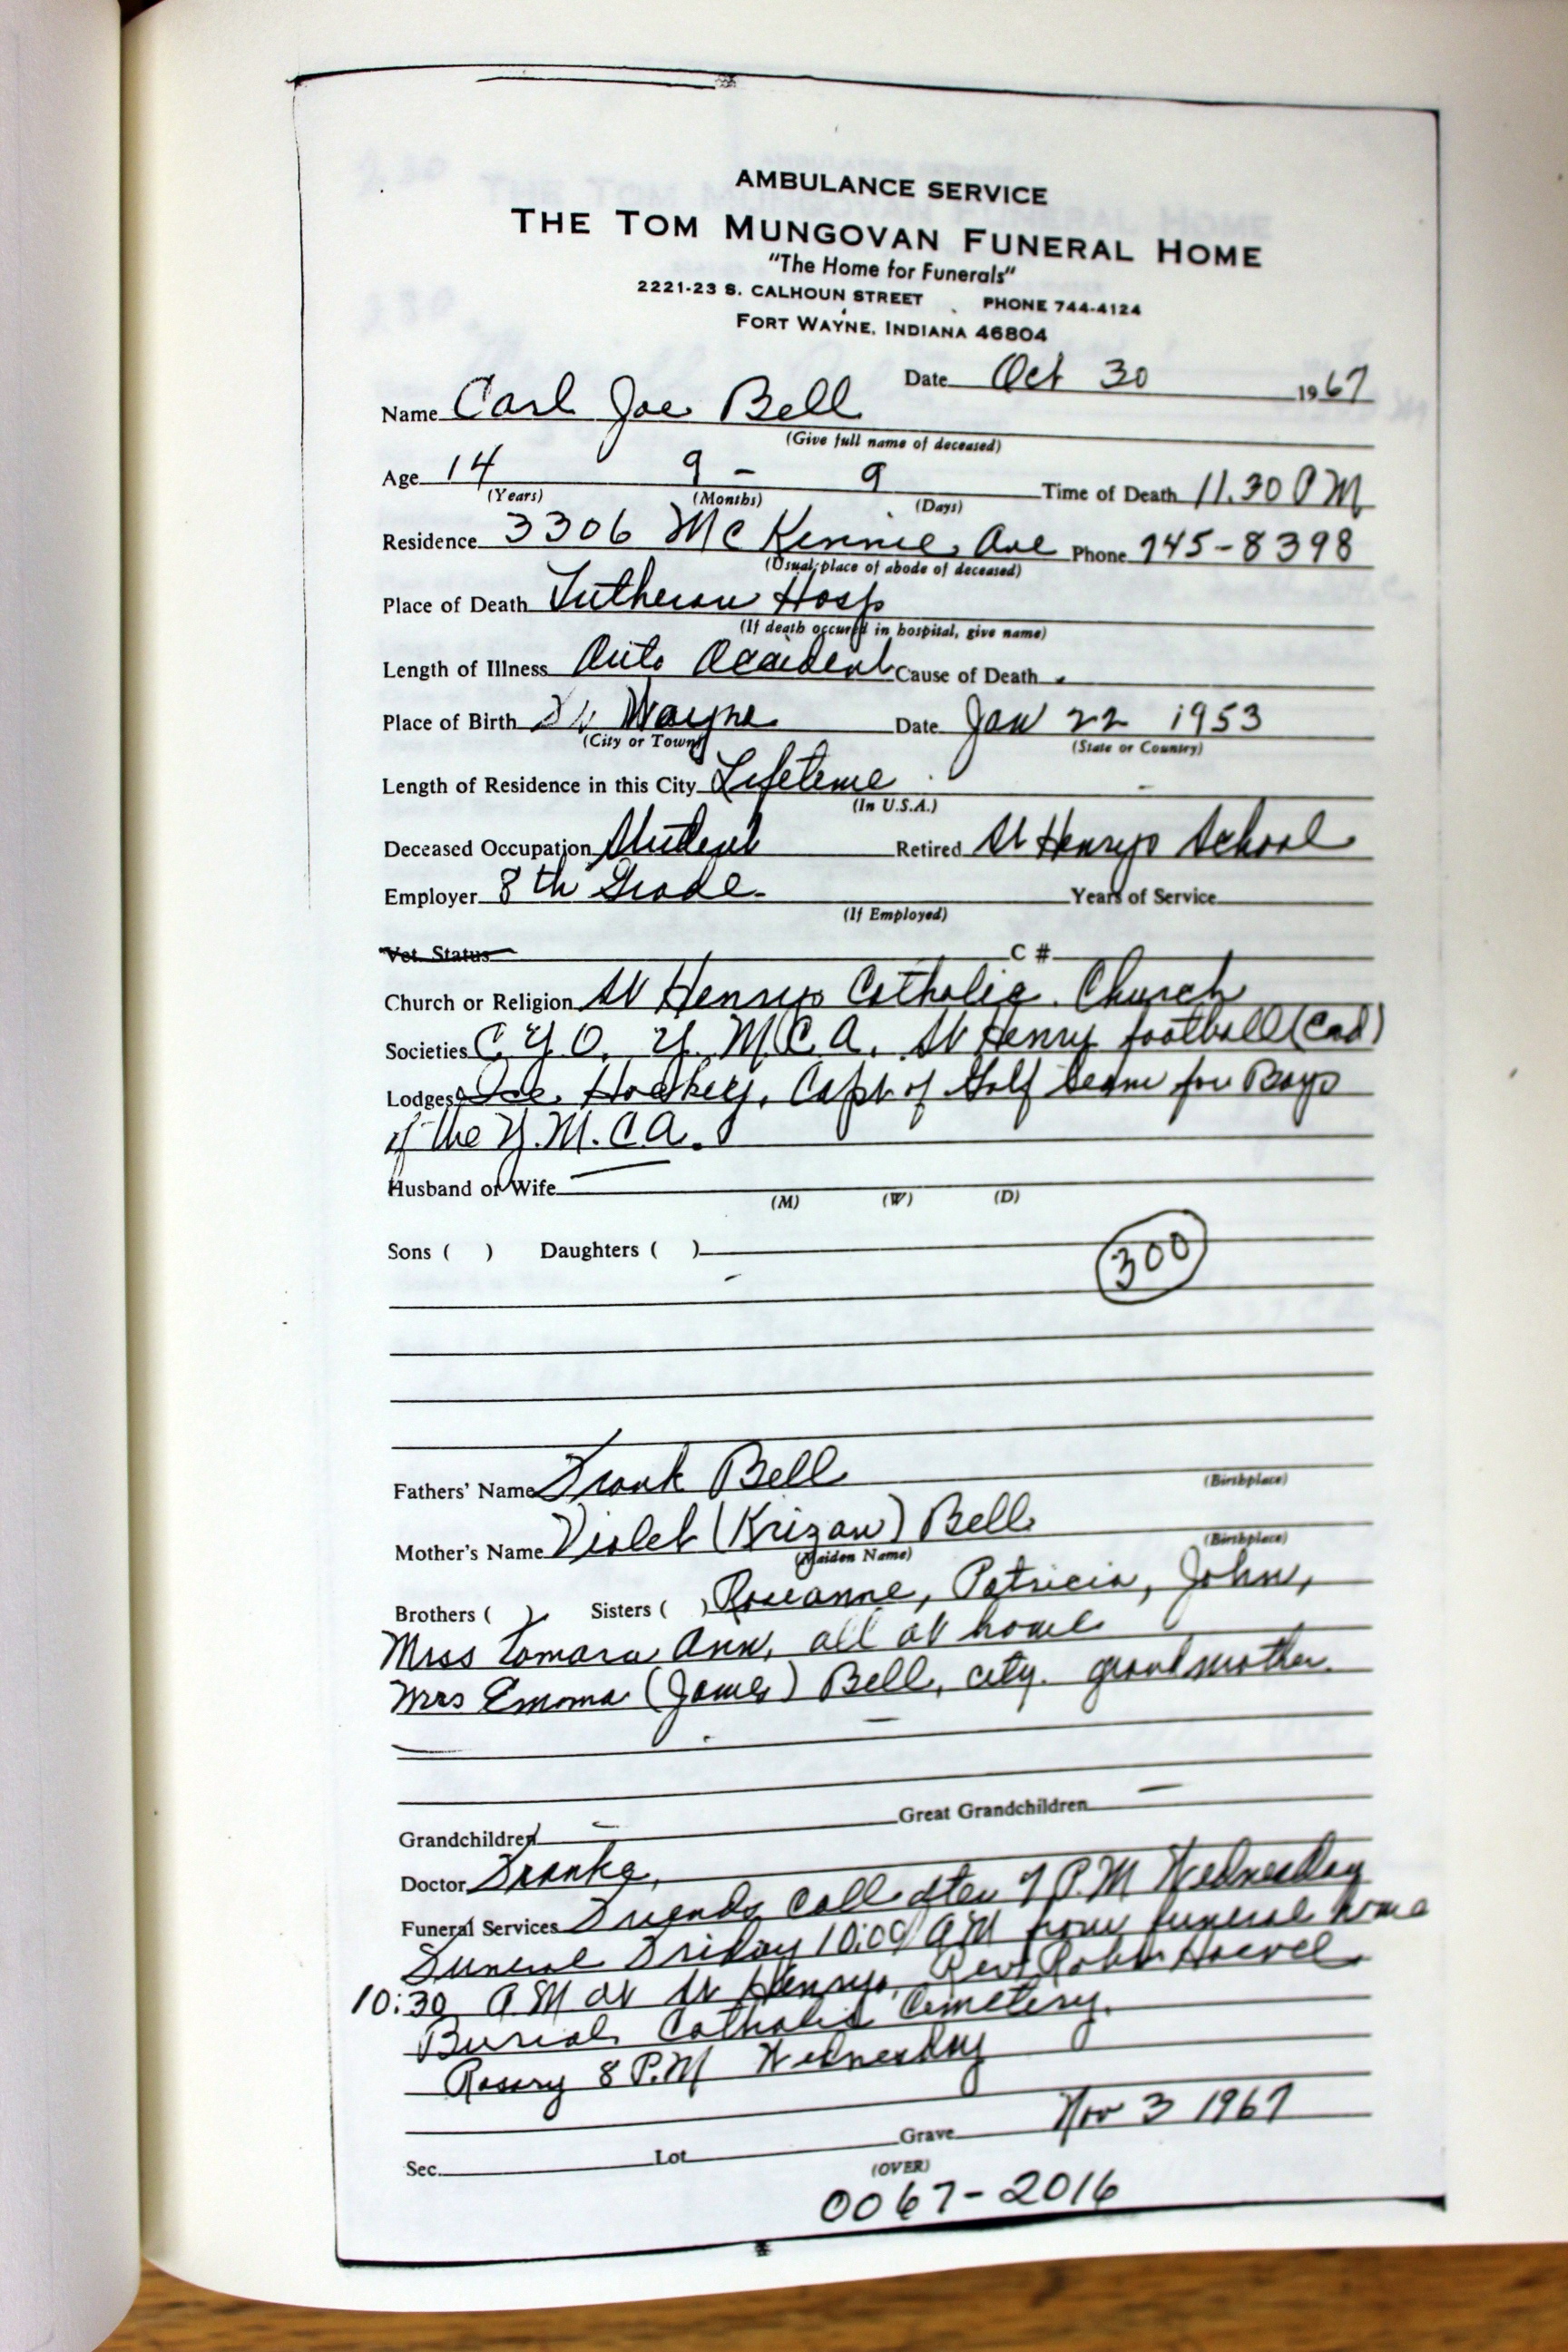 AMBULANCE SERVICE
THE TOM MUNGOVAN FUNERAL HOME
"The Home for Funerals"
2221-23 S. CALHOUN STREET PHONE 744-4124
FORT WAYNE, INDIANA 46804
Date Oct 30 1967
Name Carl Joe Bell
(Give full name of deceased)
Age 14 9 - 9 Time of Death 11.30 PM
(Years) (Months) (Days)
Residence 3306 McKinnie, Ave Phone 745-8398
(Usual place of abode of deceased)
Place of Death Lutheran Hosp
(If death occured in hospital, give name)
Length of Illness Auto Accident Cause of Death
Place of Birth Ft Wayne Date Jan 22 1953
(City or Town) (State or Country)
Length of Residence in this City Lifetime
(In U.S.A.)
Deceased Occupation Student Retired St Henrys School
Employer 8th Grade Years of Service
(If Employed)
Vet. Status C #
Church or Religion St Henrys Catholic Church
Societies C.Y.O. Y.M.C.A. St Henry football (Cad)
Lodges Ice Hockey, Capt of Golf team for Boys
of the Y.M.C.A.
Husband or Wife
(M) (W) (D)
Sons ( ) Daughters ( )
300
Fathers' Name Frank Bell
(Birthplace)
Mother's Name Violet (Krizan) Bell
(Maiden Name) (Birthplace)
Brothers ( ) Sisters ( ) Roseanne, Patricia, John,
Miss Tamara Ann, all at home
Mrs Emma (James) Bell, city. grandmother.
Grandchildren Great Grandchildren
Doctor
Funeral Services Friends call after 7 P.M Wednesday
Funeral Friday 10:00 AM from funeral home
10:30 AM at St Henrys, Rev Robt Hoevel
Burial Catholic Cemetery.
Rosary 8 P.M Wednesday
Nov 3 1967
Sec. Lot Grave
(OVER)
0067-2016